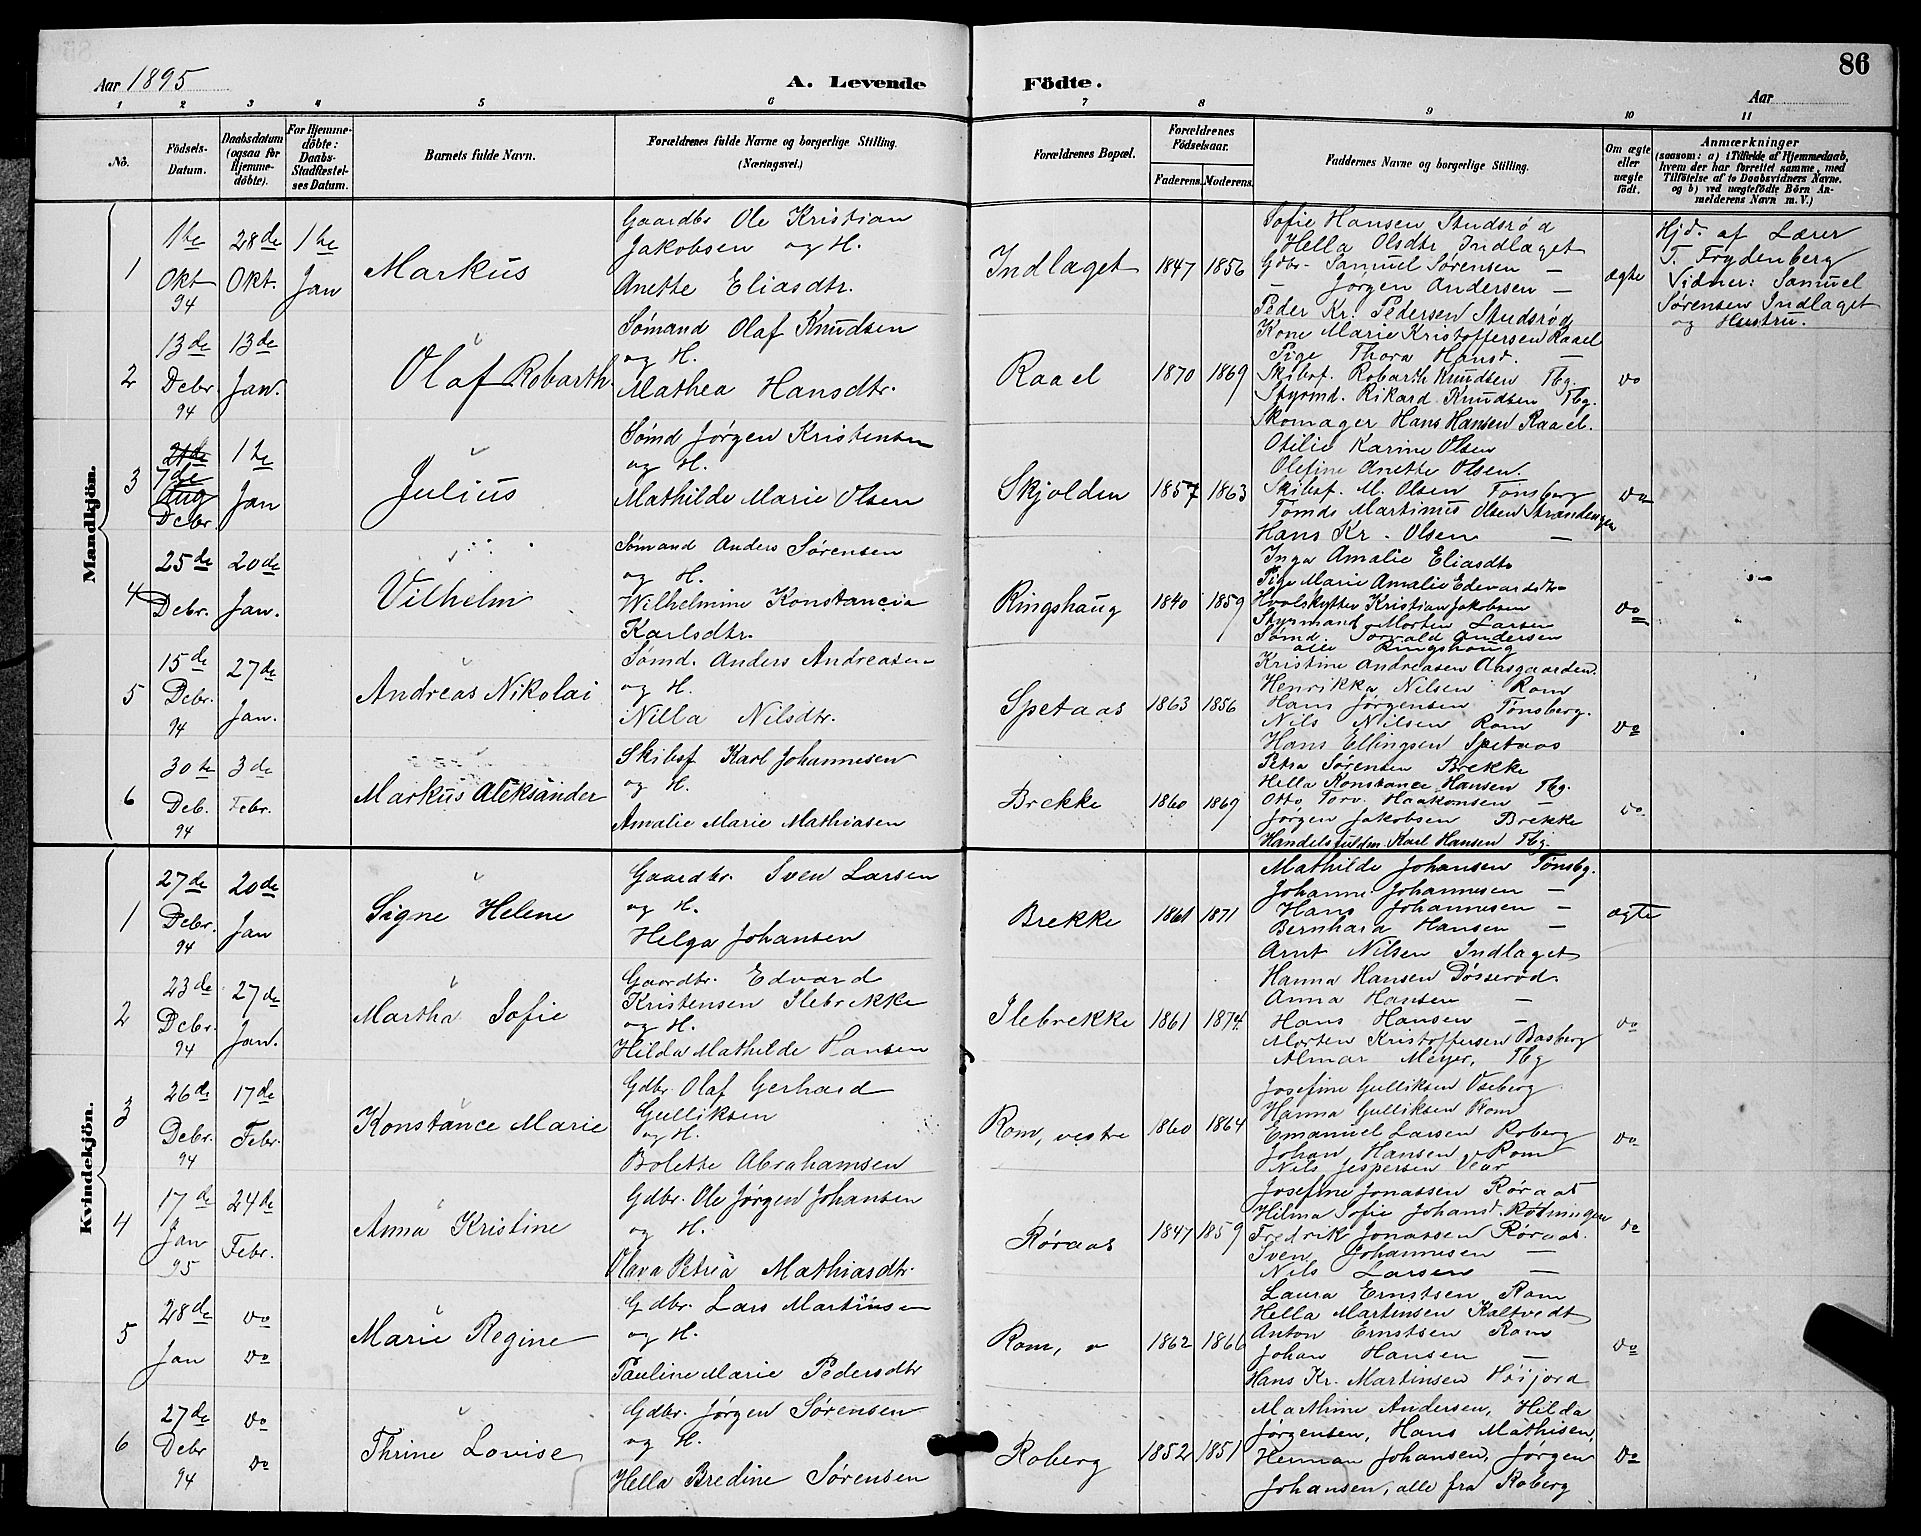 86
Aar 1895
A. Levende
Födte.
Aar
1 2 3 4 5 6 7 8 9 10 11
No.
Födsels-
Datum.
Daabsdatum
(ogsaa for
Hjemme-
döbte).
For Hjemme-
döbte:
Daabs-
Stadfæstel-
ses Datum.
Barnets fulde Navn.
Forældrenes fulde Navne og borgerlige Stilling.
(Næringsvei.)
Forældrenes Bopæl.
Forældrenes
Födselsaar.
Faderens. Moderens.
Faddernes Navne og borgerlige Stilling.
Om ægte
eller
uægte
födt.
Anmærkninger
(saasom: a) i Tilfælde af Hjemmedaab,
hvem der har forrettet samme, med
Tilföielse af to Daabsvidners Navne.
og b) ved uægtefödte Börn An-
melderens Navn m. V.)
Mandkjön.
1
1te
Okt
94
28de
Okt.
1te
Jan
Markus
Gaardbr Ole Kristian
Jakobsen og H.
Anette Eliasdtr.
Indlaget
1847 1856
Sofie Hansen Studsrød
Hella Olsdtr. Indlaget
Gdbr. Samuel Sørensen —
— Jørgen Andersen —
Peder Kr. Pedersen Studsrød
ægte
Hjd. af Lærer
T. Frydenberg
Vidner: Samuel
Sørensen Indlaget
og Hustru.
2
13de
Debr
94
13de
Jan.
Olaf Robarth.
Sømand Olaf Knudsen
og H.
Mathea Hansdtr.
Raael
1870 1869
Kone Marie Kristoffersen Raael
Pige Thora Hansd. —
Skibsf. Robarth Knudsen Tbg.
Styrmd. Rikard Knudsen Tbg.
Skomager Hans Hansen Raael.
do
3
21de
7de
Aug
Debr.
1te
Jan
Julius
Sømd Jørgen Kristensen
og H.
Mathilde Marie Olsen
Skjolden
1857 1863
Otilie Karine Olsen
Olefine Anette Olsen.
Skibsf. M. Olsen Tønsberg
Tømds Martinus Olsen Strandengen
Hans Kr. Olsen —
do
4
25de
Debr.
20de
Jan.
Vilhelm
Sømand Anders Sørensen
og H.
Wilhelmine Konstancia
Karlsdtr.
Ringshaug
1840 1859
Inga Amalie Eliasdtr
Pige Marie Amalie Edevardsdtr
Hvalskytter Kristian Jakobsen
Styrmand Morten Larsen
Sømd. Torvald Andersen
alle Ringshaug
do
5
15de
Debr.
94
27de
Jan.
Andreas Nikolai
Sømd. Anders Andreasen
og H.
Nilla Nilsdtr.
Spetaas
1863 1856
Kristine Andreasen Aasgaarden.
Henrikka Nilsen Rom
Hans Jørgensen Tønsberg.
Nils Nilsen Rom
Hans Ellingsen Spetaas
do
6
30te
Deb.
94
3de
Febr.
Markus Aleksander
Skibsf Karl Johannesen
og H.
Amalie Marie Mathiasen
Brekke
1860 1869
Petra Sørensen Brekke
Hella Konstance Hansen Tbg.
Otto Torv. Haakonsen —
Jørgen Jakobsen Brekke
Handelsfuldm. Karl Hansen Tbg.
do.
Kvindekjön.
1
27de
Debr.
94
20de
Jan
Signe Helene
Gaardbr. Sven Larsen
og H.
Helga Johansen
Brekke
1861 1871
Mathilde Johansen Tønsbg.
Johanne Johannesen —
Hans Johannesen —
Bernhard Hansen —
Arnt Nilsen Indlaget
ægte
2
23de
Debr.
94
27de
Jan.
Martha Sofie
Gaardbr. Edvard
Kristensen Ilebrekke
og H.
Hilda Mathilde Hansen
Ilebrekke
1861 1874.
Hanna Hansen Døsserød.
Anna Hansen —
Hans Hansen —
Morten Kristoffersen Basberg
Almar Meyer, Tbg
do
3
26de
Debr.
94
17de
Febr.
Konstance Marie
Gdbr. Olaf Gerhard
Gulliksen
og H.
Bolette Abrahamsen
Rom, vestre
1860 1864
Josefine Gulliksen Vseberg
Hanna Gulliksen Rom
Emanuel Larsen Roberg
Johan Hansen Rom
Nils Jespersen Vear
do
4
17de
Jan
95
24de
Febr.
Anna Kristine
Gdbr. Ole Jørgen Johansen
og H.
Olava Petrea Mathiasdtr.
Røraas
1847 1859
Josefine Jonassen Røraas
Hilma Sofie Johansd. Rødningen
Fredrik Jonassen Røraas.
Sven Johannesen —
Nils Larsen —
do
5
28de
Jan
do
do
Marie Regine
Gdbr. Lars Martinsen
og H.
Pauline Marie Pedersdtr
Rom, v
1862 1866
Laura Ernstsen Rom
Hella Martinsen Kaltvedt
Anton Ernstsen Rom
Johan Hansen —
Hans Kr. Martinsen Høijord
do
6
27de
Debr
94
do
do
Thrine Lovise
Gdbr. Jørgen Sørensen
og H.
Hella Bredine Sørensen
Roberg
1852 1851
Marthine Andersen, Hilda
Jørgensen, Hans Mathisen,
Herman Johansen, Jørgen
Johansen, alle fra Roberg
do